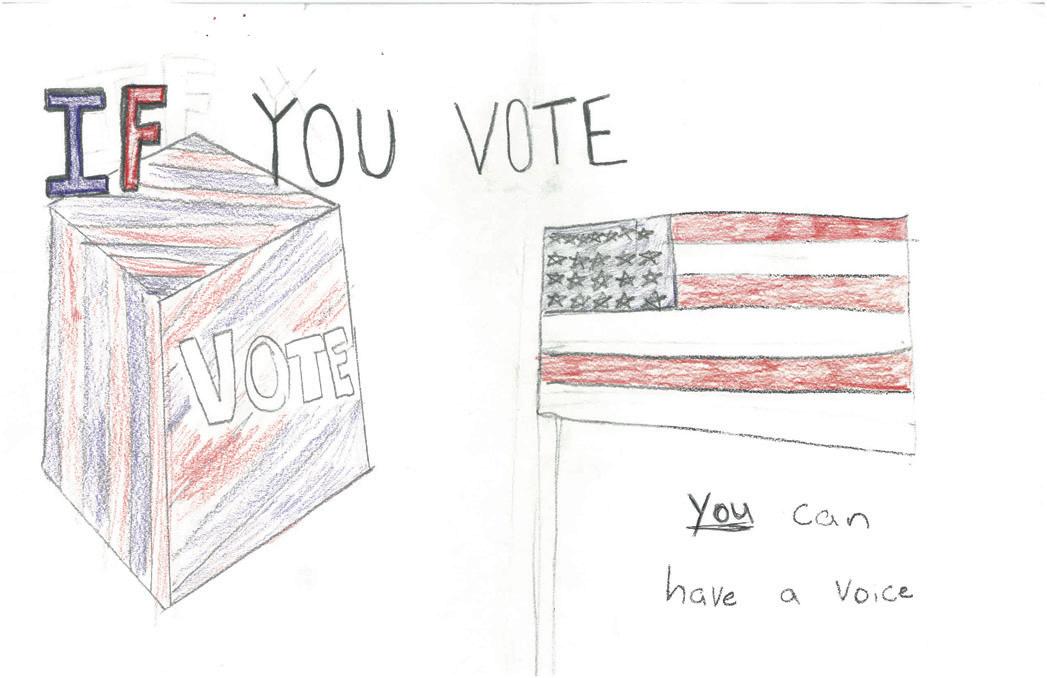 IF YOU VOTE
VOTE
You can
have a voice